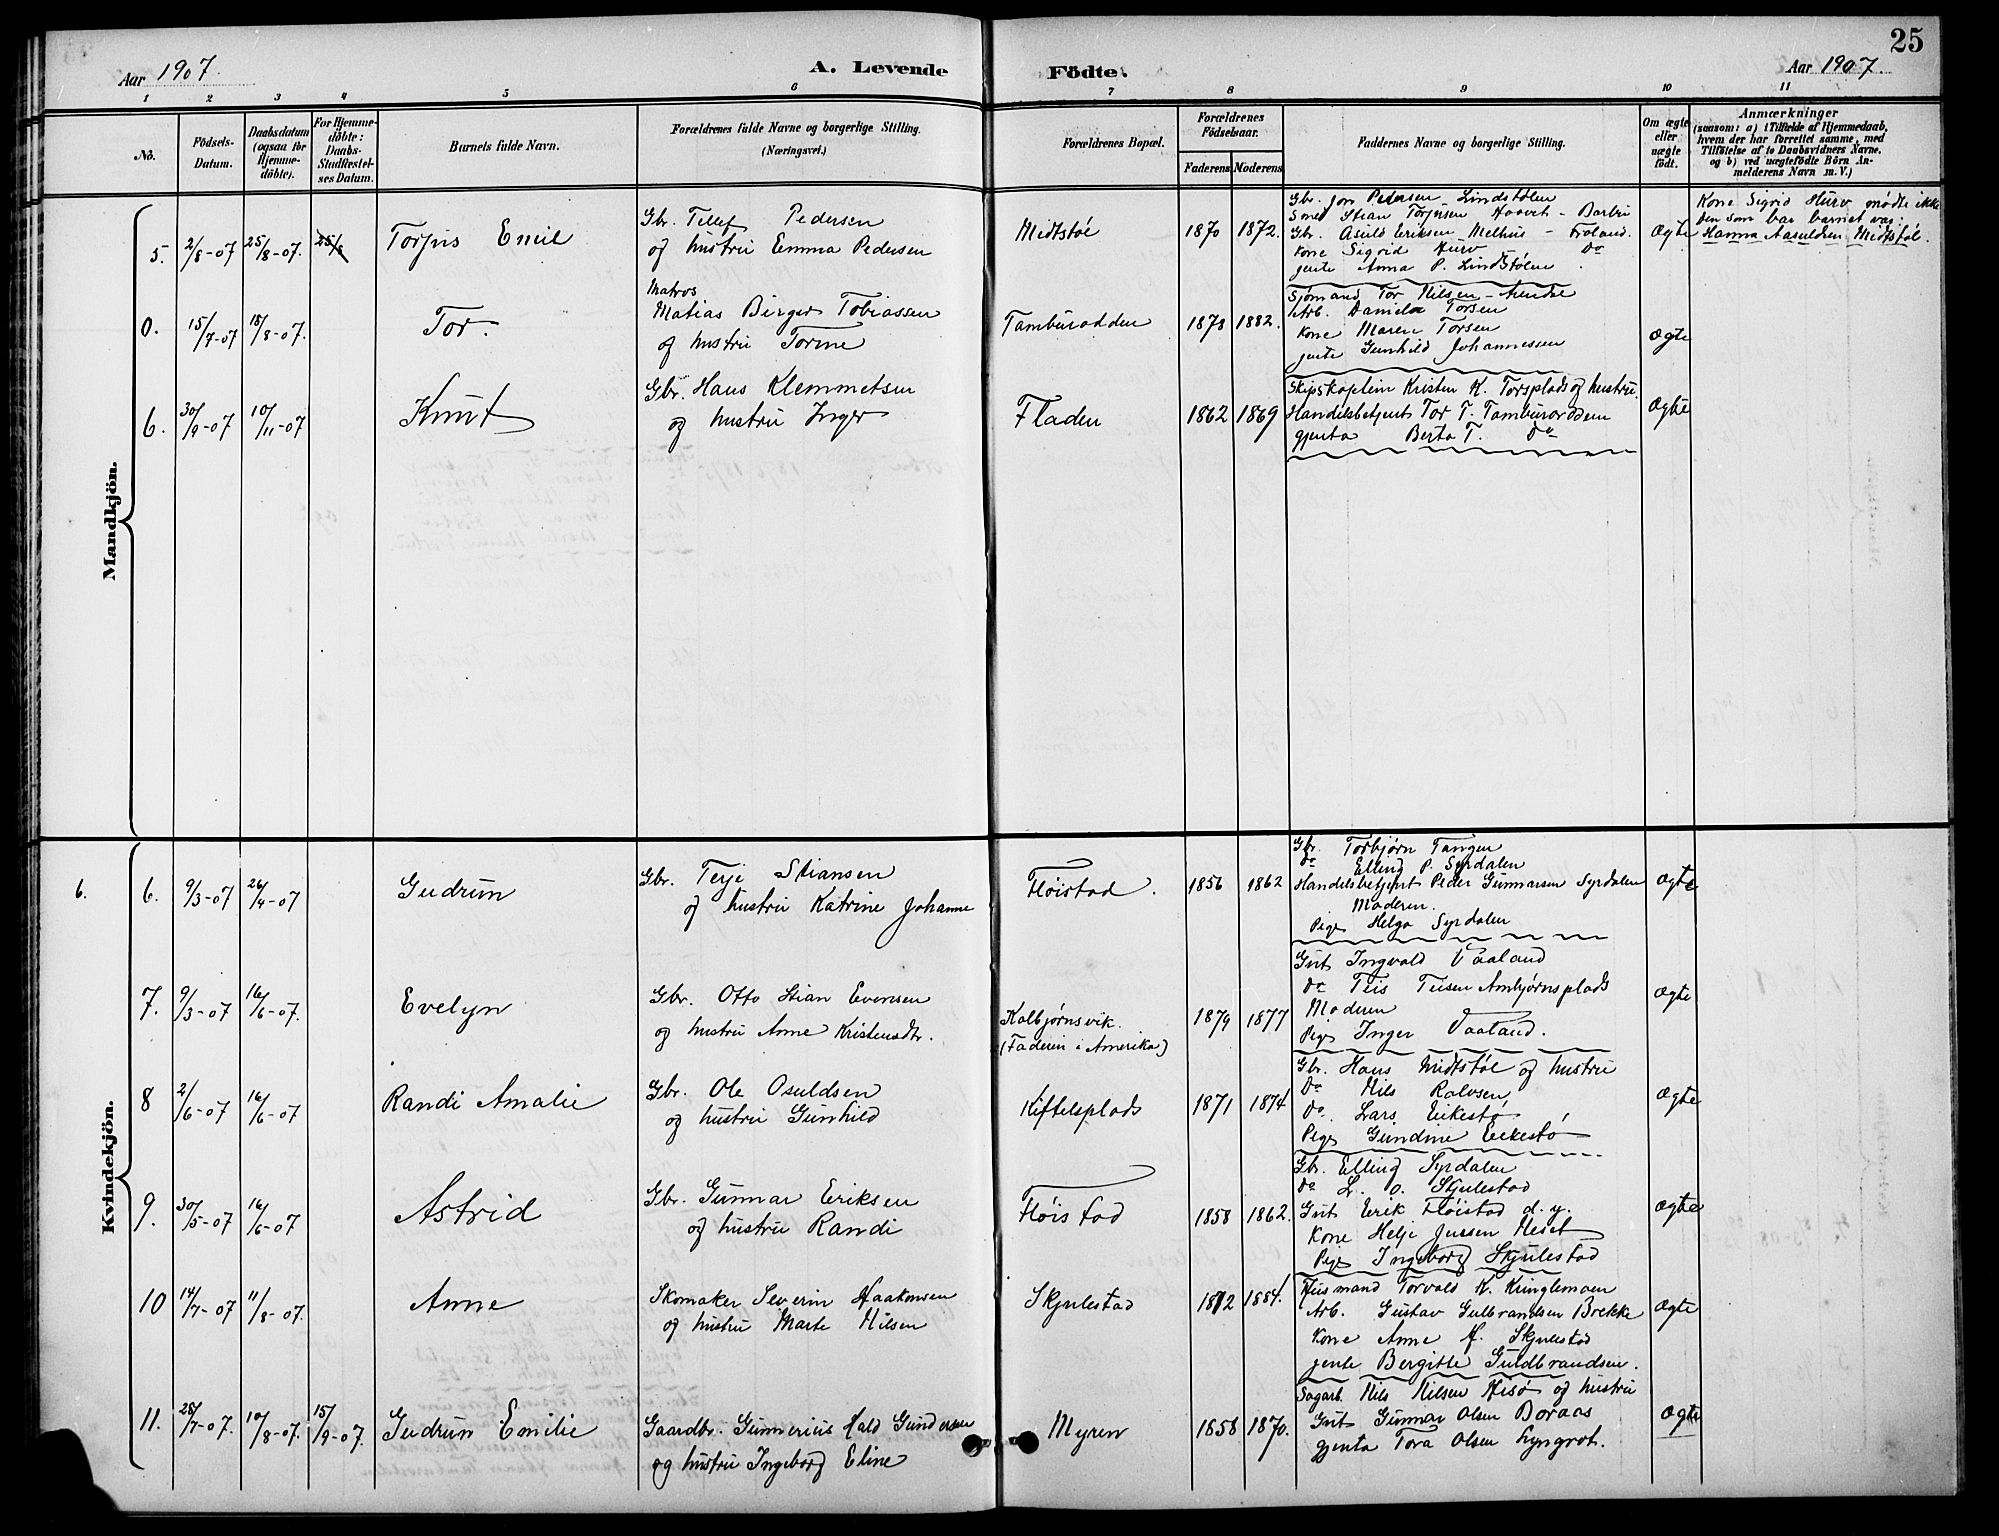 25
Aar 1907.
A. Levende Födte.
Aar 1907
1 2 3 4 5 6 7 8 9 10 11
No.
Födsels-Datum.
Daabsdatum (ogsaa for Hjemme-döbte).
For Hjemme-döbte: Daabs-Stadfæstel-ses Datum.
Barnets fulde Navn.
Forældrenes fulde Navne og borgerlige Stilling. (Næringsvei.)
Forældrenes Bopæl.
Forældrenes Födselsaar.
Faderens Moderens
Faddernes Navne og borgerlige Stilling.
Om ægte eller uægte födt.
Anmærkninger
(saasom: a) i Tilfælde af Hjemmedaab, hvem der har forrettet samme, med Tilföielse af to Daabsvidners Navne, og b) ved uægtefödte Börn An-melderens Navn m. V.)
Mandkjön.
5. 2/8-07 25/8-07. 25/8 Torjus Emil
Gbr. Tellef Pedersen
og hustru Emma Pedersen
Midtstøl 1870 1872.
Gbr. Jon Pedersen Lindstølen
Smed Stian Torjusen Haavet - Barbu
Gbr. Asuld Eriksen Melhus - Froland.
Kone Sigrid Hurv Do
jente Anna P. Lindstølen
Ægte
Kone Sigrid Hurv mødte ikke
den som bar barnet var:
Hanna Aasuldsen Midtstøl.
0. 15/7-07 18/8-07. Tor.
Matros
Matias Birger Tobiassen
og hustru Torine
Tamburodden 1878 1882.
Sjømand Tor Nilsen - Arendal
Arb. Daniel Torsen
Kone Maren Torsen
jente Gunhild Johannessen
Ægte
6. 30/9-07 10/11-07 Knut
Gbr. Hans Klemmetsen
og hustru Inger
Fladen 1862 1869
Skipskaptein Kristen K. Torsplads og hustru.
Handelsbetjent Tor T. Tamburodden
gjenta Berta T. Do
Ægte
Kvindekjön.
6. 6. 9/3-07 26/4-07 Gudrun
Gbr. Terje Stiansen
og hustru Katrine Johanne
Fløistad. 1856 1862
Gbr. Torbjørn Tangen
Do Elling P. Syrdalen
Handelsbetjent Peder Gunnarsen Syrdalen
Moderen.
Pige Helga Syrdalen
Ægte
7. 9/3-07 16/6-07. Evelyn
Gbr. Otto Stian Evensen
og hustru Anne Kristensdtr.
Kolbjørnsvik.
(Faderen i Amerika)
1879 1877
Gut Ingvald Vaaland
Do Teis Teisen Ambjørnsplads
Moderen
Pige Inger Vaaland.
Ægte
8 2/6-07 16/6-07 Randi Amalie
Gbr. Ole Osuldsen
og hustru Gunhild
Kifteleplads 1871 1874
Gbr. Hans Midtstøl og hustru
Do Nils Rolvsen
Do. Lars Eikestø
Pige Gundine Eikestø
Ægte
9. 30/5-07 16/6-07 Astrid
Gbr. Gunnar Eriksen
og hustru Randi
Fløistad 1858 1862.
Gbr. Elling Syrdalen
Do L. O. Skjulestad
Gut Erik Fløistad d. y.
Kone Helje Jussen Heset
Pige Ingeborg Skjulestad
Ægte
10 14/7-07 11/8-07. Anne
Skomaker Severin Haakonsen
og hustru Marte Nilsen
Skjulestad 1884.
Husmand Torvald K. Kringlemoen
Arb. Gustav Gulbrandsen Brekke
Kone Anne H. Skjulestad
jente Bergitte Guldbrandsen.
Ægte
11. 28/7-07. 10/8-07. 15/9-07. Gudrun Emilie
Gaardbr. Gunnerius Hald Gundersen
og hustru Ingeborg Eline
Myren 1858 1870.
Sagarb. Nils Nilsen Hisø og hustru
Gut Gunnar Olsen Boraas
gjenta Tora Olsen Lyngrot.
Ægte